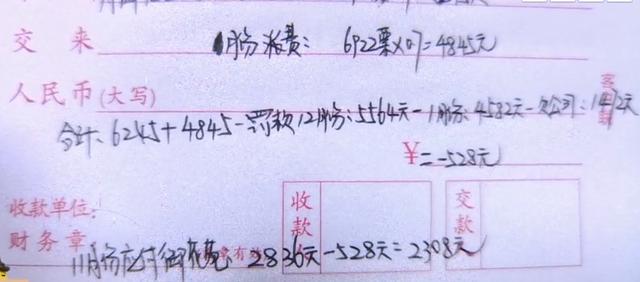 交来 1月份派费: 6922票×0.7=4845元
人民币(大写)
合计: 6245+4845-罚款12月份: 5564元-1月份: 4582元-欠公司: 1472元
¥=-528元
收款单位:
财务章
收款
交款
11月份应付 费: 2836元-528元=2308元